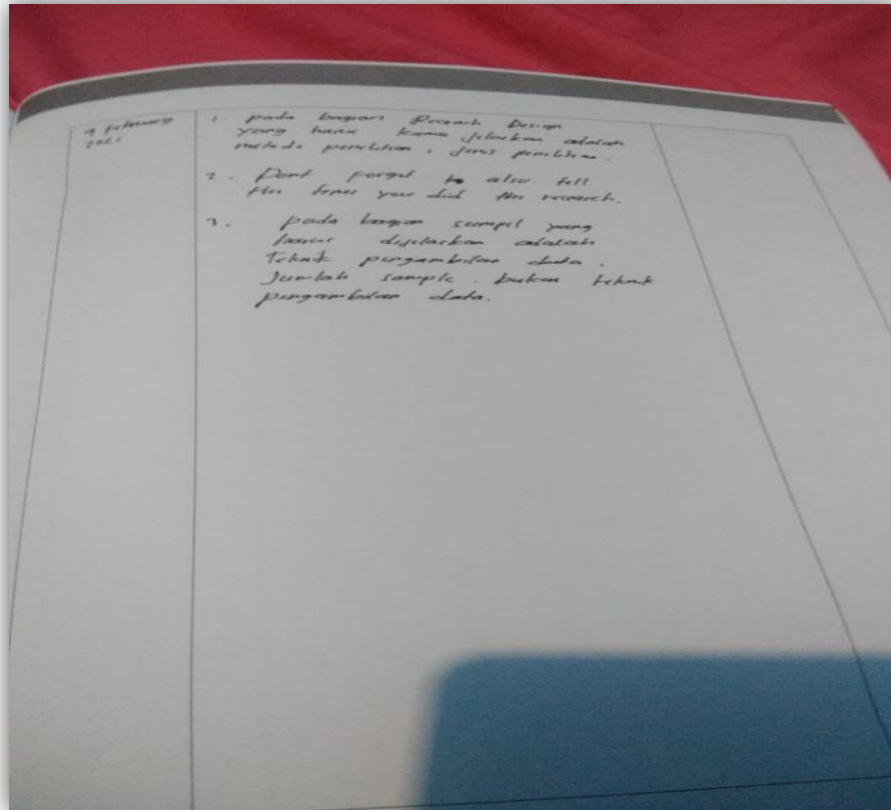 9 February
2021
1. pada bagian Reseach Design
yang harus kamu jelaskan adalah
metode penelitian, jenis penelitian.
2. Dont forget to also tell
the time you did the research.
3. pada bagian sampel yang
harus dijelaskan adalah
Teknik pengambilan data.
Jumlah sample. bukan teknik
pengambilan data.